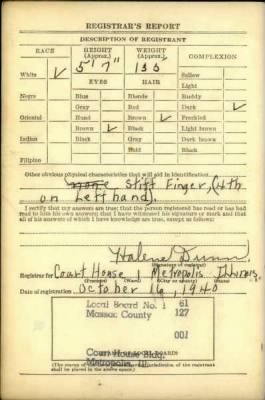 REGISTRAR'S REPORT
DESCRIPTION OF REGISTRANT
RACE HEIGHT (Approx.) WEIGHT (Approx.) COMPLEXION
5' 7" 135
White ✓ Sallow
EYES HAIR Light
Negro Blue Blonde Ruddy
Gray Red Dark ✓
Oriental Hazel Brown ✓ Freckled
Brown ✓ Black Light brown
Indian Black Gray Dark brown
Bald Black
Filipino
Other obvious physical characteristics that will aid in identification
none Stiff Finger, (4th
on Left hand).
I certify that my answers are true; that the person registered has read or has had
read to him his own answers; that I have witnessed his signature or mark and that
all of his answers of which I have knowledge are true, except as follows:
Halene Dunn
(Signature of registrar)
Registrar for Court House 1 Metropolis Illinois
(Precinct) (Ward) (City or county) (State)
Date of registration October 16, 1940
Local Board No. 1 61
Massac County 127
001
Court House Bldg.
Metropolis, Ill.
(The stamp of the local board having jurisdiction of the registrant
shall be placed in the above space.)